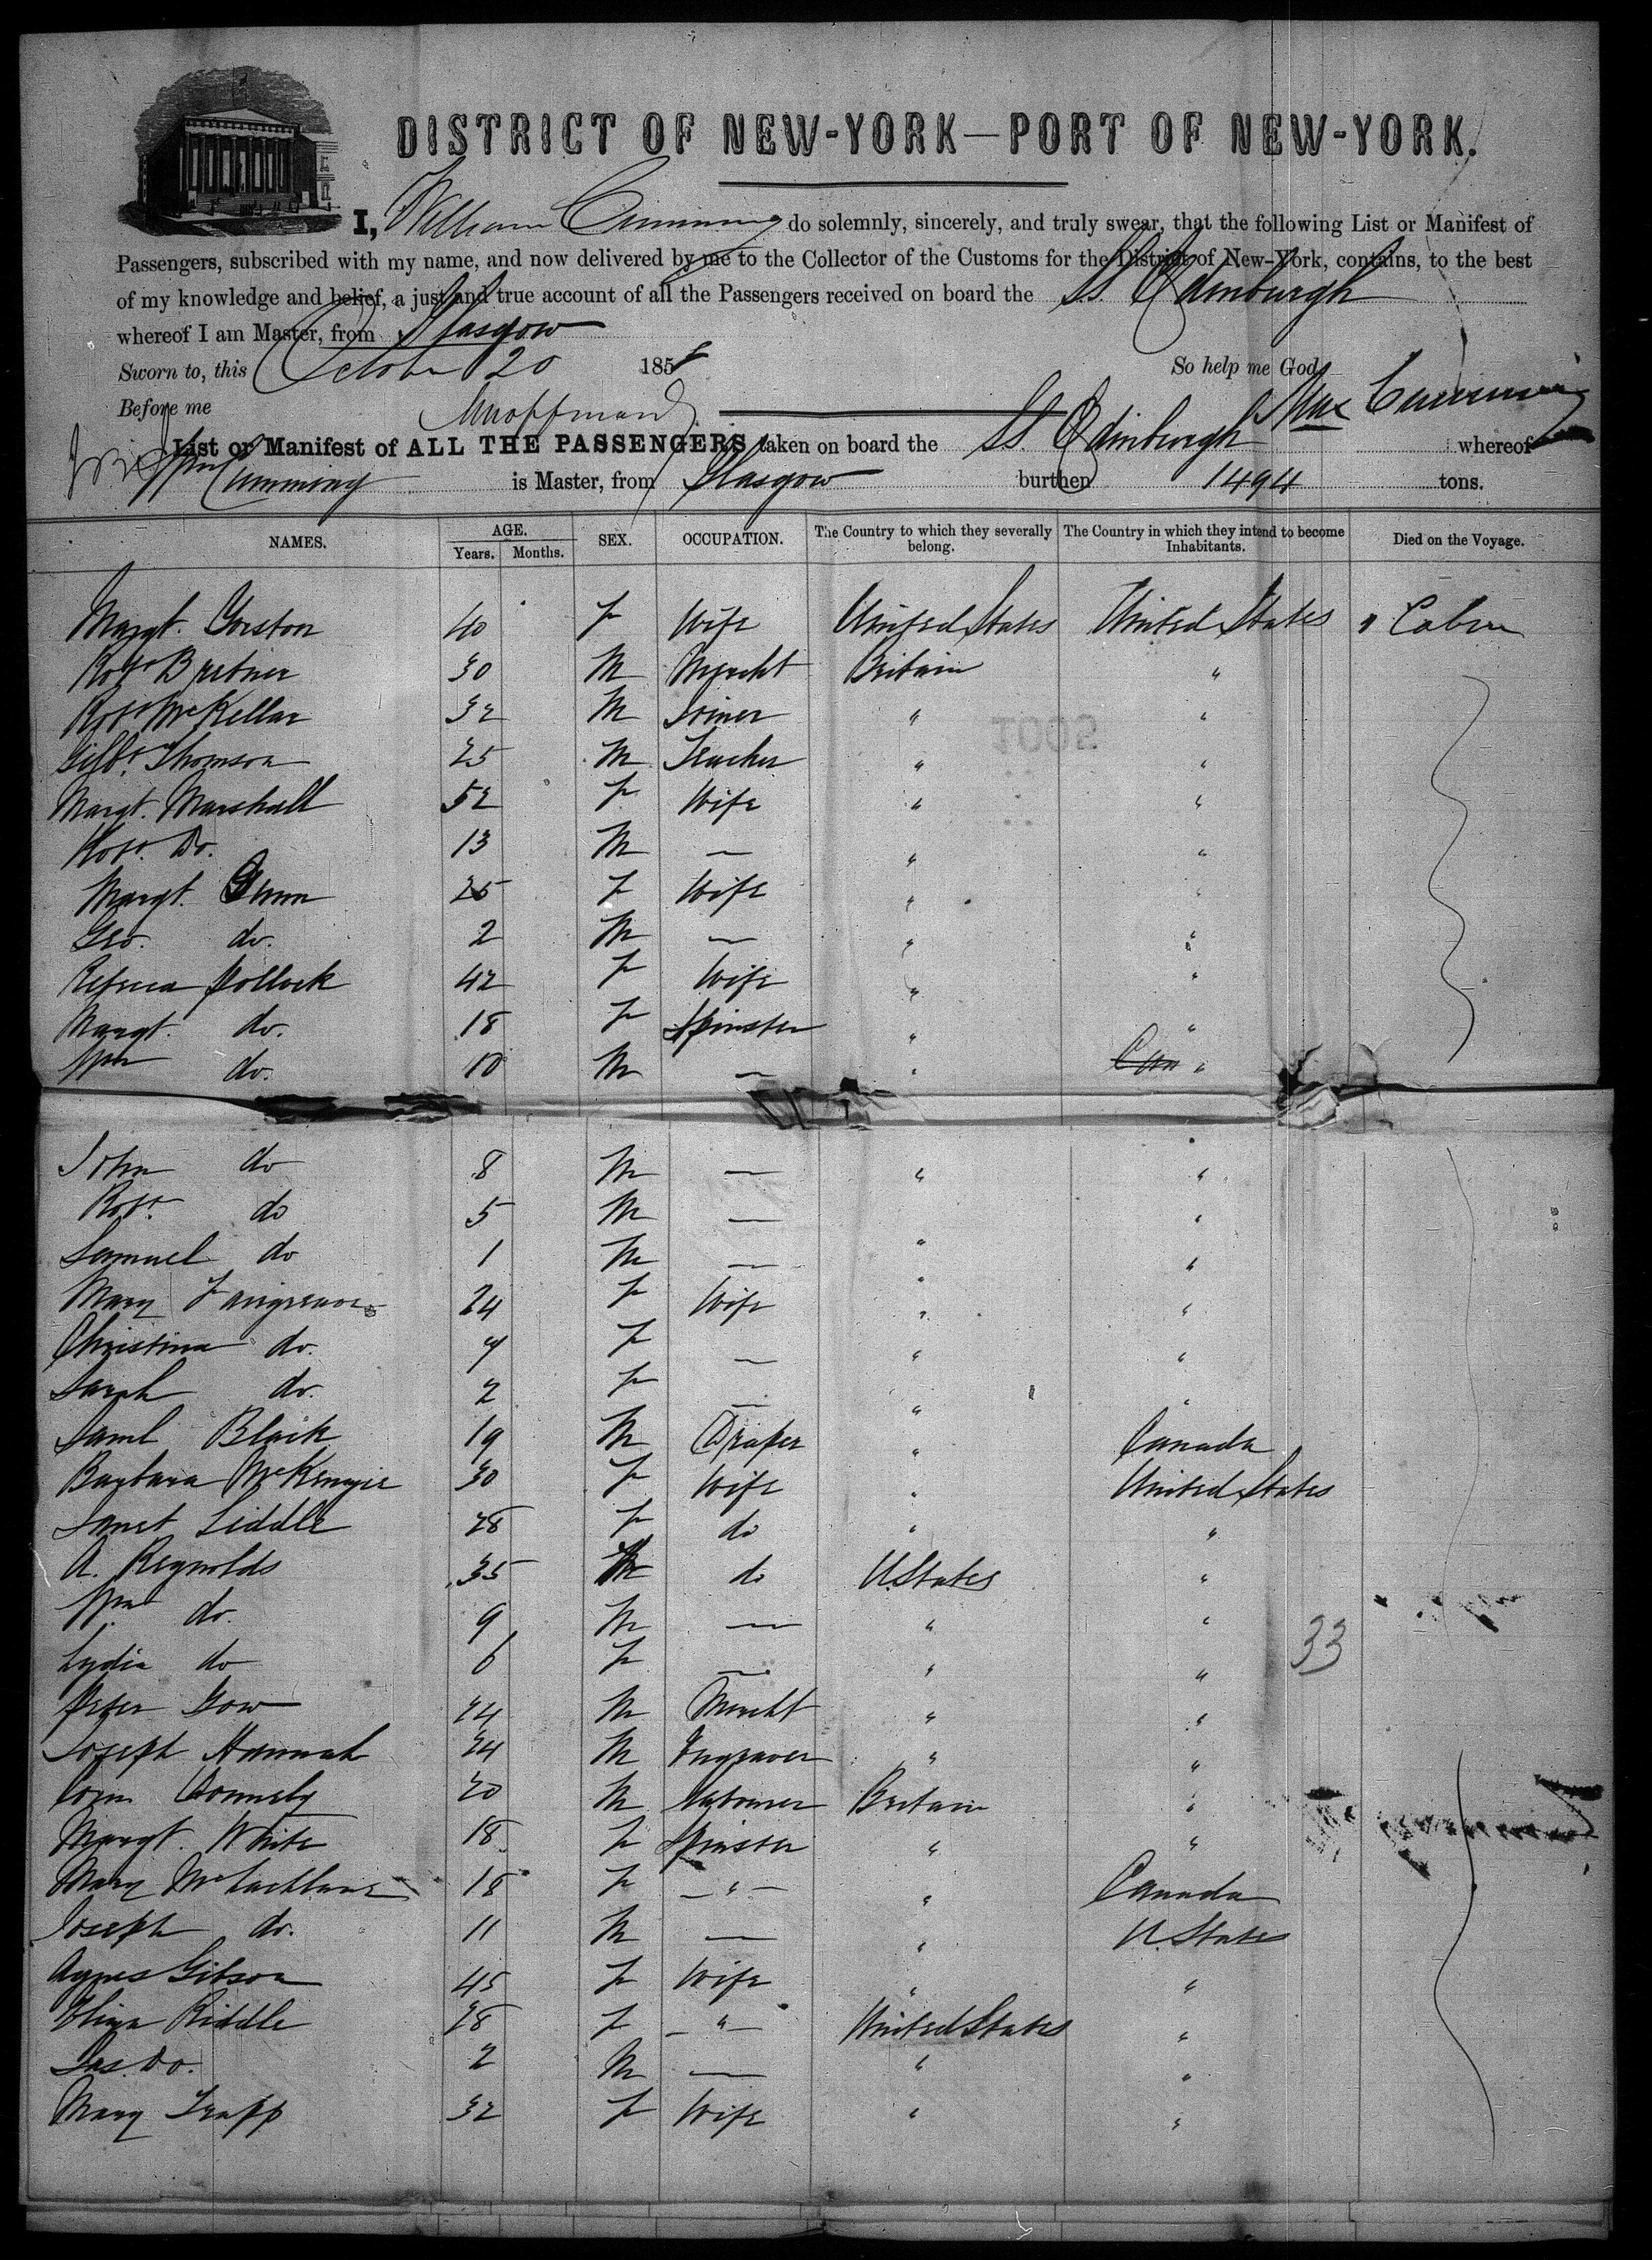 DISTRICT OF NEW-YORK—PORT OF NEW-YORK.
I, William Cumming do solemnly, sincerely, and truly swear, that the following List or Manifest of
Passengers, subscribed with my name, and now delivered by me to the Collector of the Customs for the District of New-York, contains, to the best
of my knowledge and belief, a just and true account of all the Passengers received on board the SS. Edinburgh
whereof I am Master, from Glasgow
Sworn to, this October 20 185 So help me God
Before me Wm Cumming
List or Manifest of ALL THE PASSENGERS taken on board the SS. Edinburgh whereof
Wm Cumming is Master, from Glasgow burthen 1494 tons.
NAMES. AGE. Years. Months. SEX. OCCUPATION. The Country to which they severally belong. The Country in which they intend to become Inhabitants. Died on the Voyage.
Margt. Gorston 40 F Wife United States United States " Cabin
Robt Bretner 30 M Mercht Britain "
Robt McKellar 32 M Joiner " "
Gilbt. Thomson 25 M Teacher " "
Margt. Marshall 52 F Wife " "
Robt. Do. 13 M — " "
Margt. Gunn 25 F Wife " "
Geo. do. 2 M — " "
Rebecca Pollock 42 F Wife " "
Margt. do. 18 F Spinster " "
Wm do. 10 M — " Can "
John do 8 M — " "
Robt. do 5 M — " "
Samuel do 1 M — " "
Mary Fairgreave 24 F Wife " "
Christina do. 4 F — " "
Sarah do. 2 F — " "
Saml Black 19 M Draper " Canada
Barbara McKenzie 30 F Wife " United States
Janet Liddle 28 F do " "
A. Reynolds 35 do U. States "
Wm do. 9 M — " "
Lydia do 6 F — " "
33
Peter Gow 24 M Mercht " "
Joseph Hannah 24 M Engraver " "
Corn Connely 20 M Labourer Britain "
Margt. White 18 F Spinster " "
Mary McLachlane 18 F — " — " Canada
Joseph do. 11 M — " U. States
Agnes Gibson 45 F Wife " "
Eliza Riddle 28 F — " — United States "
Jas. Do. 2 M — " "
Mary Trapp 32 F Wife " "